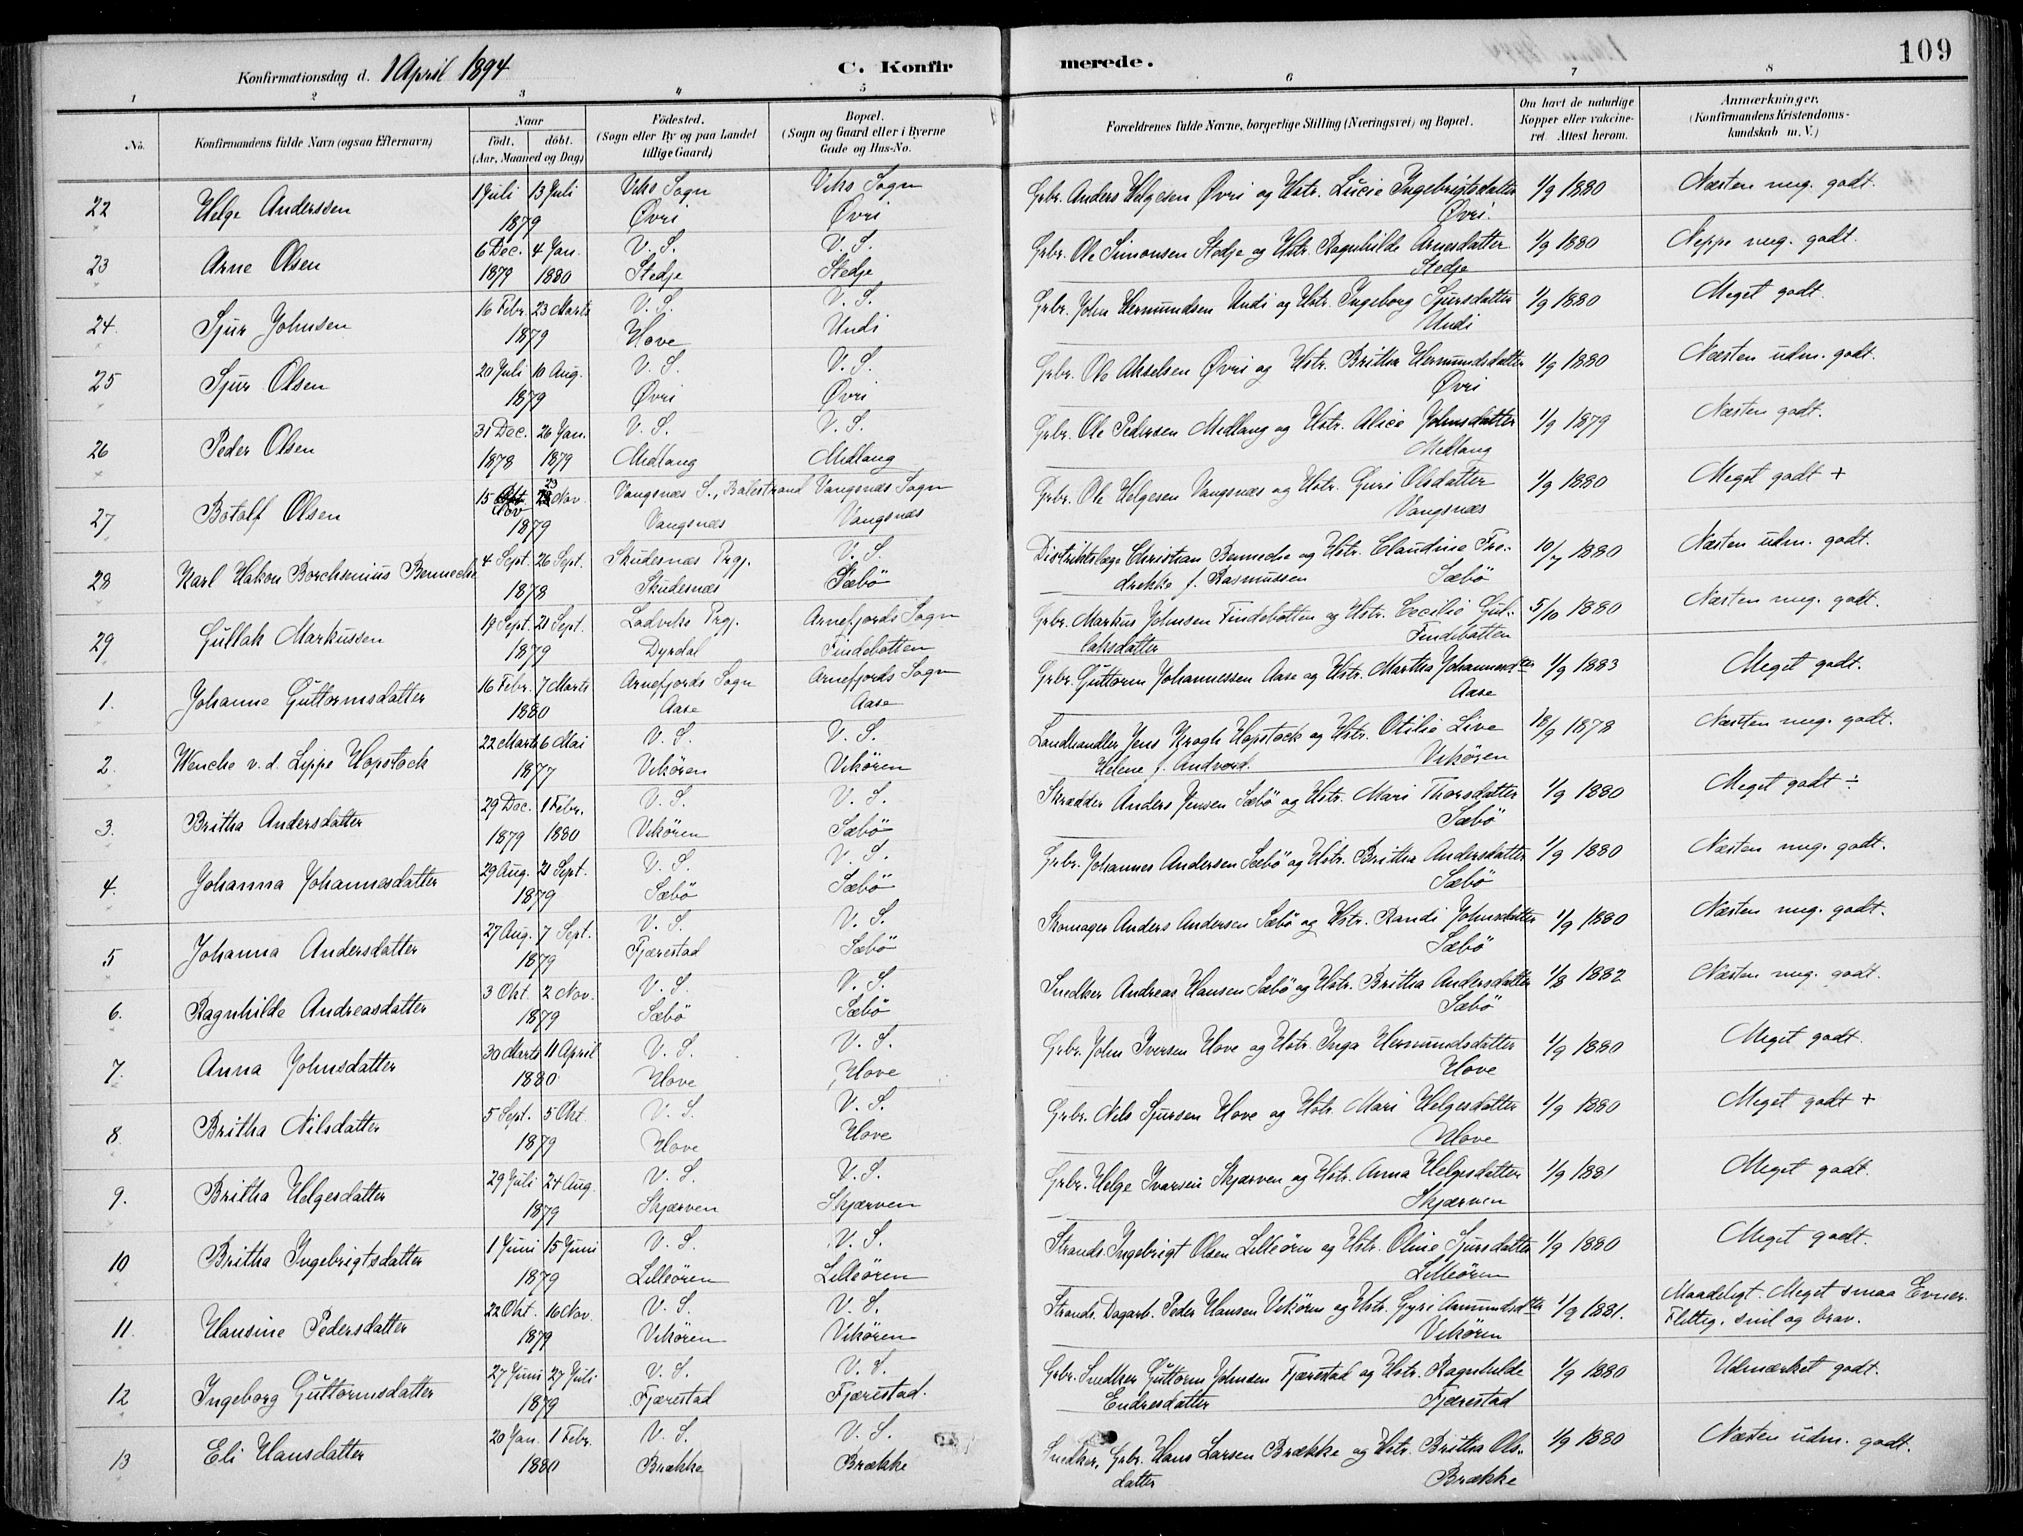 Konfirmationsdag d. 1 April 1894
C. Konfirmerede.
109
1 2 3 4 5 6 7 8
No.
Konfirmandens fulde Navn (ogsaa Efternavn)
Naar
födt. döbt.
(Aar, Maaned og Dag)
Födested.
(Sogn eller By og paa Landet tillige Gaard)
Bopæl.
(Sogn og Gaard eller i Byerne Gade og Hus-No.
Forældrenes fulde Navne, borgerlige Stilling (Næringsvei) og Bopæl.
Om havt de naturlige Kopper eller vakcineret. Attest herom.
Anmærkninger.
(Konfirmandens Kristendomskundskab m. V.)
22 Helge Anderssen 1 Juli 13 Juli 1879 Viks Sogn Øvri Viks Sogn Øvri Gbr. Anders Helgesen Øvri og Hstr. Lucie Ingebrigtsdatter Øvri. 1/9 1880 Næsten mg. godt.
23 Arne Olsen 6 Dec. 1879 4 Jan. 1880 V. S. Stedje V. S. Stedje Gbr. Ole Simonsen Stedje og Hstr. Ragnhilde Arnesdatter Stedje 1/9 1880 Neppe mg. godt.
24. Sjur Johnsen 16 Febr. 23 Marts 1879 V. S. Hove V. S. Undi Gbr. John Hermundsen Undi og Hstr. Ingeborg Sjursdatter Undi 1/9 1880 Meget godt.
25 Sjur Olsen 20 Juli 10 Aug. 1879 V. S. Øvri V. S. Øvri Gbr. Ole Akselsen Øvri og Hstr. Britha Hermundsdatter Øvri 1/9 1880 Næsten udm. godt.
26 Peder Olsen 31 Dec. 1878 26 Jan. 1879 V. S. Midlang V. S. Midlang Gbr. Ole Pedersen Midlang og Hstr. Alice Johnsdatter Midlang 1/9 1879 Næsten godt.
27 Botolf Olsen 15 Nov 23 Nov. 1879 Vangsnæs S., Balestrand Vangsnæs Vangsnæs Sogn Vangsnæs Gbr. Ole Helgesen Vangsnæs og Hstr. Guri Olsdatter Vangsnæs 1/9 1880 Meget godt +
28 Karl Hakon Borchsenius Benneche 4 Sept. 26 Sept. 1878 Skudesnæs Prgj. Skudesnæs V. S. Sæbö Distriktslæge Christian Benneche og Hstr. Claudine Fredrekke f. Rasmussen Sæbö 10/7 1880 Næsten udm. godt.
29 Gullak Markussen 17 Sept. 21 Sept. 1879 Ladviks Prgj. Dyrdal Arnefjords Sogn Findebotten Gbr. Markus Johnsen Findebotten og Hstr. Cecilie Gullaksdatter Findebotten 5/10 1880 Næsten mg. godt.
1. Johanne Guttormsdatter 16 Febr. 7 Marts 1880 Arnefjords Sogn Aase Arnefjords Sogn Aase Gbr. Guttorm Johannessen Aase og Hstr. Martha Johannesdtr Aase 1/9 1883 Meget godt.
2. Wenche v. d. Lippe Hopstock 22 Marts 6 Mai 1877 V. S. Vikören V. S. Vikören Landhandler Jens Krogh Hopstock og Hstr. Otilie Live Helene f. Andvord. Vikören 18/9 1878 Næsten mg. godt.
3. Britha Andersdatter 29 Dec. 1879 1 Febr. 1880 V. S. Vikören V. S. Sæbö Skrædder Anders Jensen Sæbö og Hstr. Mari Thorsdatter Sæbö 1/9 1880 Meget godt ÷
4. Johanna Johannesdatter 29 Aug. 21 Sept. 1879 V. S. Sæbö V. S. Sæbö Gbr. Johannes Andersen Sæbö og Hstr. Britha Andersdatter Sæbö 1/9 1880 Næsten mg. godt.
5 Johanna Andersdatter 27 Aug. 7 Sept. 1879 V. S. Fjærestad V. S. Sæbö Skomager Anders Andersen Sæbö og Hstr. Randi Johnsdatter Sæbö 1/9 1880 Næsten mg. godt.
6. Ragnhilde Andreasdatter 3 Okt. 2 Nov. 1879 V. S. Sæbö V. S. Sæbö Snedker Andreas Hansen Sæbö og Hstr. Britha Andersdatter Sæbö 1/8 1882 Næsten mg. godt.
7. Anna Johnsdatter 30 Marts 11 April 1880 V. S. Hove V. S. Hove Gbr. John Iversen Hove og Hstr. Inga Hermundsdatter Hove 1/9 1880 Meget godt.
8 Britha Nilsdatter 5 Sept. 5 Okt. 1879 V. S. Hove V. S. Hove Gbr. Nels Sjursen Hove og Hstr. Mari Helgesdatter Hove 1/9 1880 Meget godt +
9. Britha Helgesdatter 29 Juli 24 Aug. 1879 V. S. Skjærven V. S. Skjærven Gbr. Helge Ivarsen Skjærven og Hstr. Anna Helgesdatter Skjærven 1/9 1881 Meget godt.
10 Britha Ingebrigtsdatter 1 Juni 15 Juni 1879 V. S. Lilleören V. S. Lilleören Strands. Ingebrigt Olsen Lilleören og Hstr. Oline Sjursdatter Lilleören 1/9 1880 Meget godt.
11. Hansine Pedersdatter 22 Okt. 16 Nov. 1879 V. S. Vikören V. S. Vikören Strands. Dagarb. Peder Hansen Vikören og Hstr. Gyri Amundsdtr Vikören 1/9 1881. Maadeligt. Meget smaa Evner. Flittig, snil og brav.
12 Ingeborg Guttormsdatter 27 Juni 27 Juli 1879 V. S. Fjærestad V. S. Fjærestad. Gbr. Snedker Guttorm Johnsen Fjærestad og Hstr. Ragnhilde Endresdatter Fjærestad 1/9 1880 Udmærket godt.
13 Eli Hansdatter 20 Jan. 1 Febr. 1880 V. S. Brække V. S. Brække Snedker, Gbr. Hans Larsen Brække og Hstr. Britha Olsdatter Brække 1/9 1880 Næsten udm. godt.